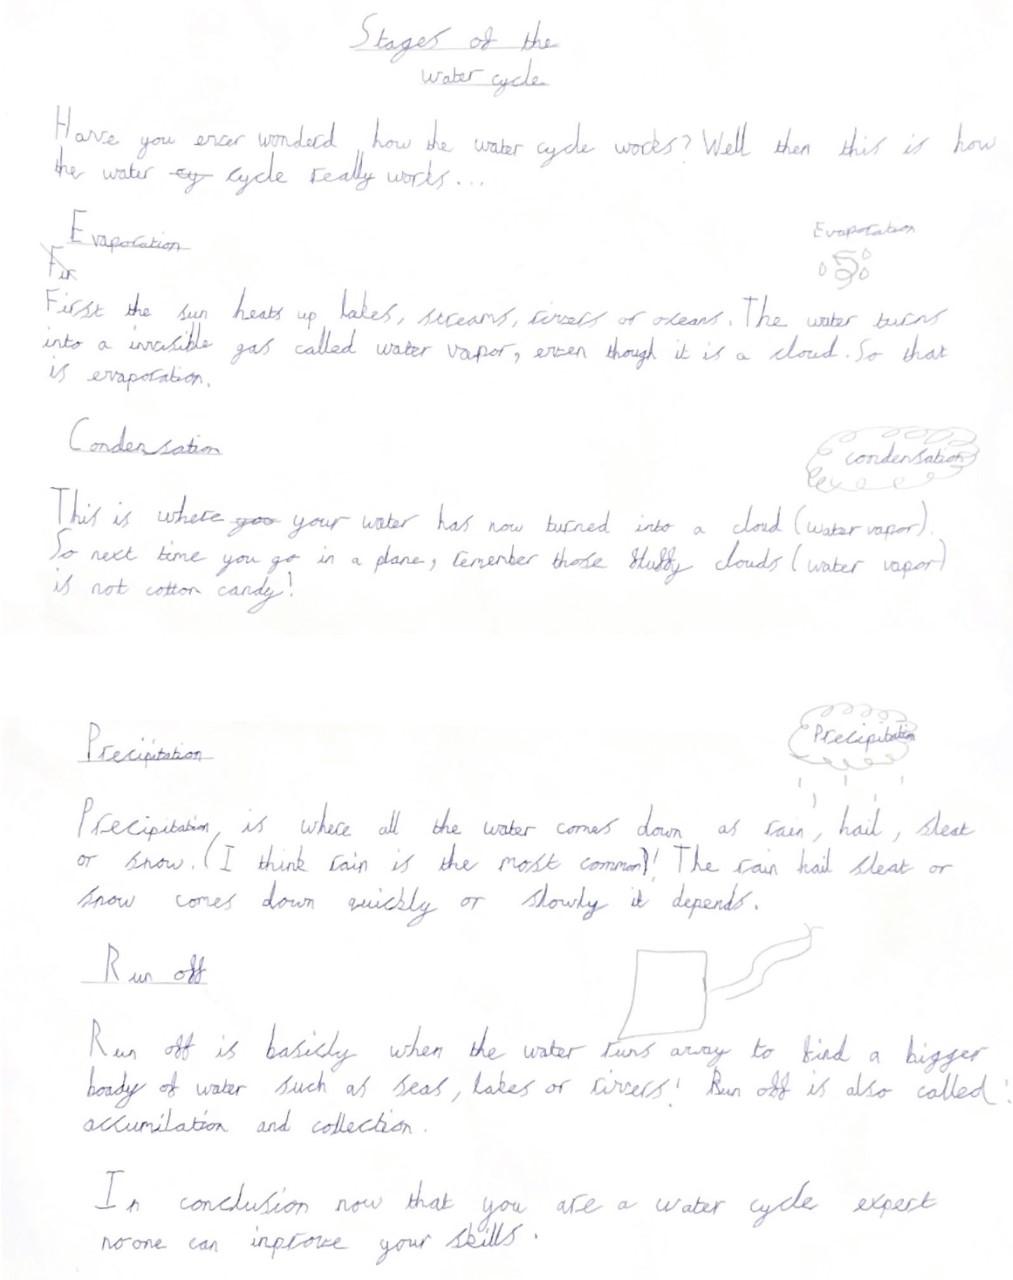 Stages of the
water cycle
Have you ever wonderd how the water cycle works? Well then this is how
the water cy cycle really works...
Evaporation
Evaporation
Fir
First the sun heats up lakes, streams, rivers or oceans. The water turns
into a invisible gas called water vapor, even though it is a cloud. So that
is evaporation.
Condensation
condensation
This is where yoo your water has now turned into a cloud (water vapor).
So next time you go in a plane, remember those fluffy clouds (water vapor)
is not cotton candy!
Precipitation
Precipitation
Precipitation, is where all the water comes down as rain, hail, sleat
or snow. (I think rain is the most common)! The rain hail sleat or
snow comes down quickly or slowly it depends.
Run off
Run off is basicly when the water runs away to find a bigger
boady of water such as seas, lakes or rivers! Run off is also called:
accumilation and collection.
In conclusion now that you are a water cycle expert
no one can inprove your skills.